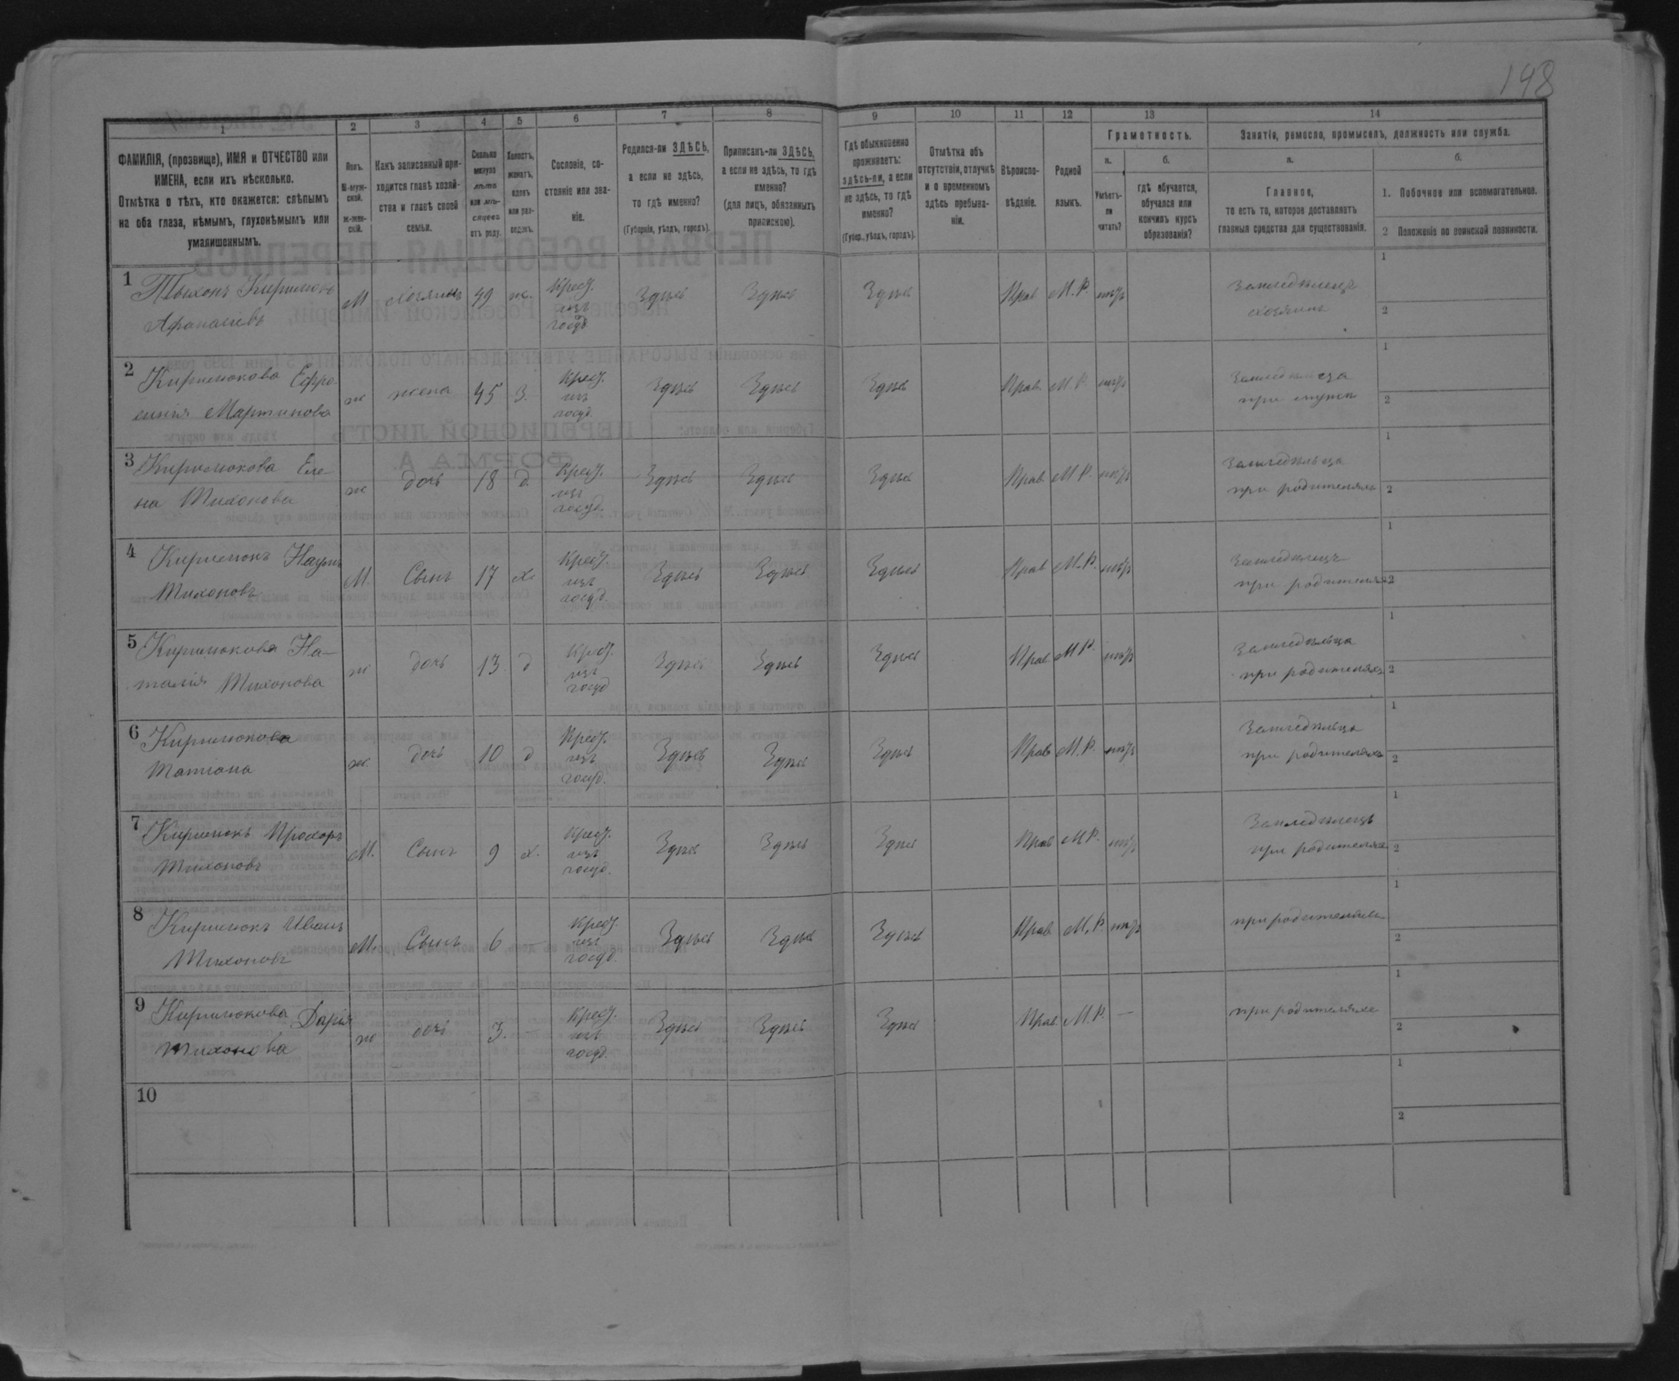 198
1 2 3 4 5 6 7 8 9 10 11 12 13 14
ФАМИЛІЯ, (прозвище), ИМЯ и ОТЧЕСТВО или
ИМЕНА, если ихъ нѣсколько.
Отмѣтка о тѣхъ, кто окажется: слѣпымъ
на оба глаза, нѣмымъ, глухонѣмымъ или
умалишеннымъ.
Полъ.
М-муж-
ской.
Ж-жен-
скій.
Какъ записанный при-
ходится главѣ хозяй-
ства и главѣ своей
семьи.
Сколько
минуло
лѣтъ
или мѣ-
сяцевъ
отъ роду.
Холостъ,
женатъ,
вдовъ
или раз-
веденъ.
Сословіе, со-
стояніе или зва-
ніе.
Родился-ли ЗДѢСЬ,
а если не здѣсь,
то гдѣ именно?
(Губернія, уѣздъ, городъ).
Приписанъ-ли ЗДѢСЬ,
а если не здѣсь, то гдѣ
именно?
(для лицъ, обязанныхъ
припискою).
Гдѣ обыкновенно
проживаетъ:
здѣсь-ли, а если
не здѣсь, то гдѣ
именно?
(Губер., уѣздъ, городъ).
Отмѣтка объ
отсутствіи, отлучкѣ
и о временномъ
здѣсь пребыва-
ніи.
Вѣроиспо-
вѣданіе.
Родной
языкъ.
Грамотность.
а.
Умѣетъ-
ли
читать?
б.
гдѣ обучается,
обучался или
кончилъ курсъ
образованія?
Занятія, ремесло, промыселъ, должность или служба.
а.
Главное,
то есть то, которое доставляетъ
главныя средства для существованія.
б.
1. Побочное или вспомогательное.
2 Положеніе по воинской повинности.
1 Тихонъ Кирилюкъ М хозяинъ 49 ж. Крест. Здѣсь Здѣсь Здѣсь Прав М.Р. нѣтъ Земледѣлецъ 1
изъ
госуд. хозяинъ 2
2 Кирилюкова Евфро ж жена 45 З. Крест. Здѣсь Здѣсь Здѣсь Прав М.Р. нѣтъ 1
синія Мартинова изъ
госуд. при мужѣ 2
3 Кирилюкова Еле- ж дочь 18 д Крест. Здѣсь Здѣсь Здѣсь Прав М.Р. нѣтъ Земледѣльца 1
на Тихонова изъ
госуд. при родителяхъ 2
4 Кирилюкъ Наумъ М. Сынъ 17 х. Крест. Здѣсь Здѣсь Здѣсь Прав М.Р. нѣтъ Земледѣлецъ 1
Тихоновъ изъ
госуд. при родителяхъ 2
5 Кирилюкова На- ж дочь 13 д Крест. Здѣсь Здѣсь Здѣсь Прав М.Р. нѣтъ Земледѣльца 1
талія Тихонова изъ
госуд при родителяхъ 2
6 Кирилюкова ж. дочь 10 д Крест. Здѣсь Здѣсь Здѣсь Прав М.Р. нѣтъ Земледѣльца 1
Татіана изъ
госуд. при родителяхъ 2
7 Кирилюкъ Прохоръ М. Сынъ 9 х. Крест. Здѣсь Здѣсь Здѣсь Прав М.Р. нѣтъ Земледѣлецъ 1
Тихоновъ изъ
госуд. при родителяхъ 2
8 Кирилюкъ Иванъ М. Сынъ 6 Крест. Здѣсь Здѣсь Здѣсь Прав М.Р. нѣтъ при родителяхъ 1
Тихоновъ изъ
госуд. 2
9 Кирилюкова Дарія ж дочь 3. — Крест. Здѣсь Здѣсь Здѣсь Прав М.Р. — при родителяхъ 1
Тихонова изъ
госуд. 2
10 1
2